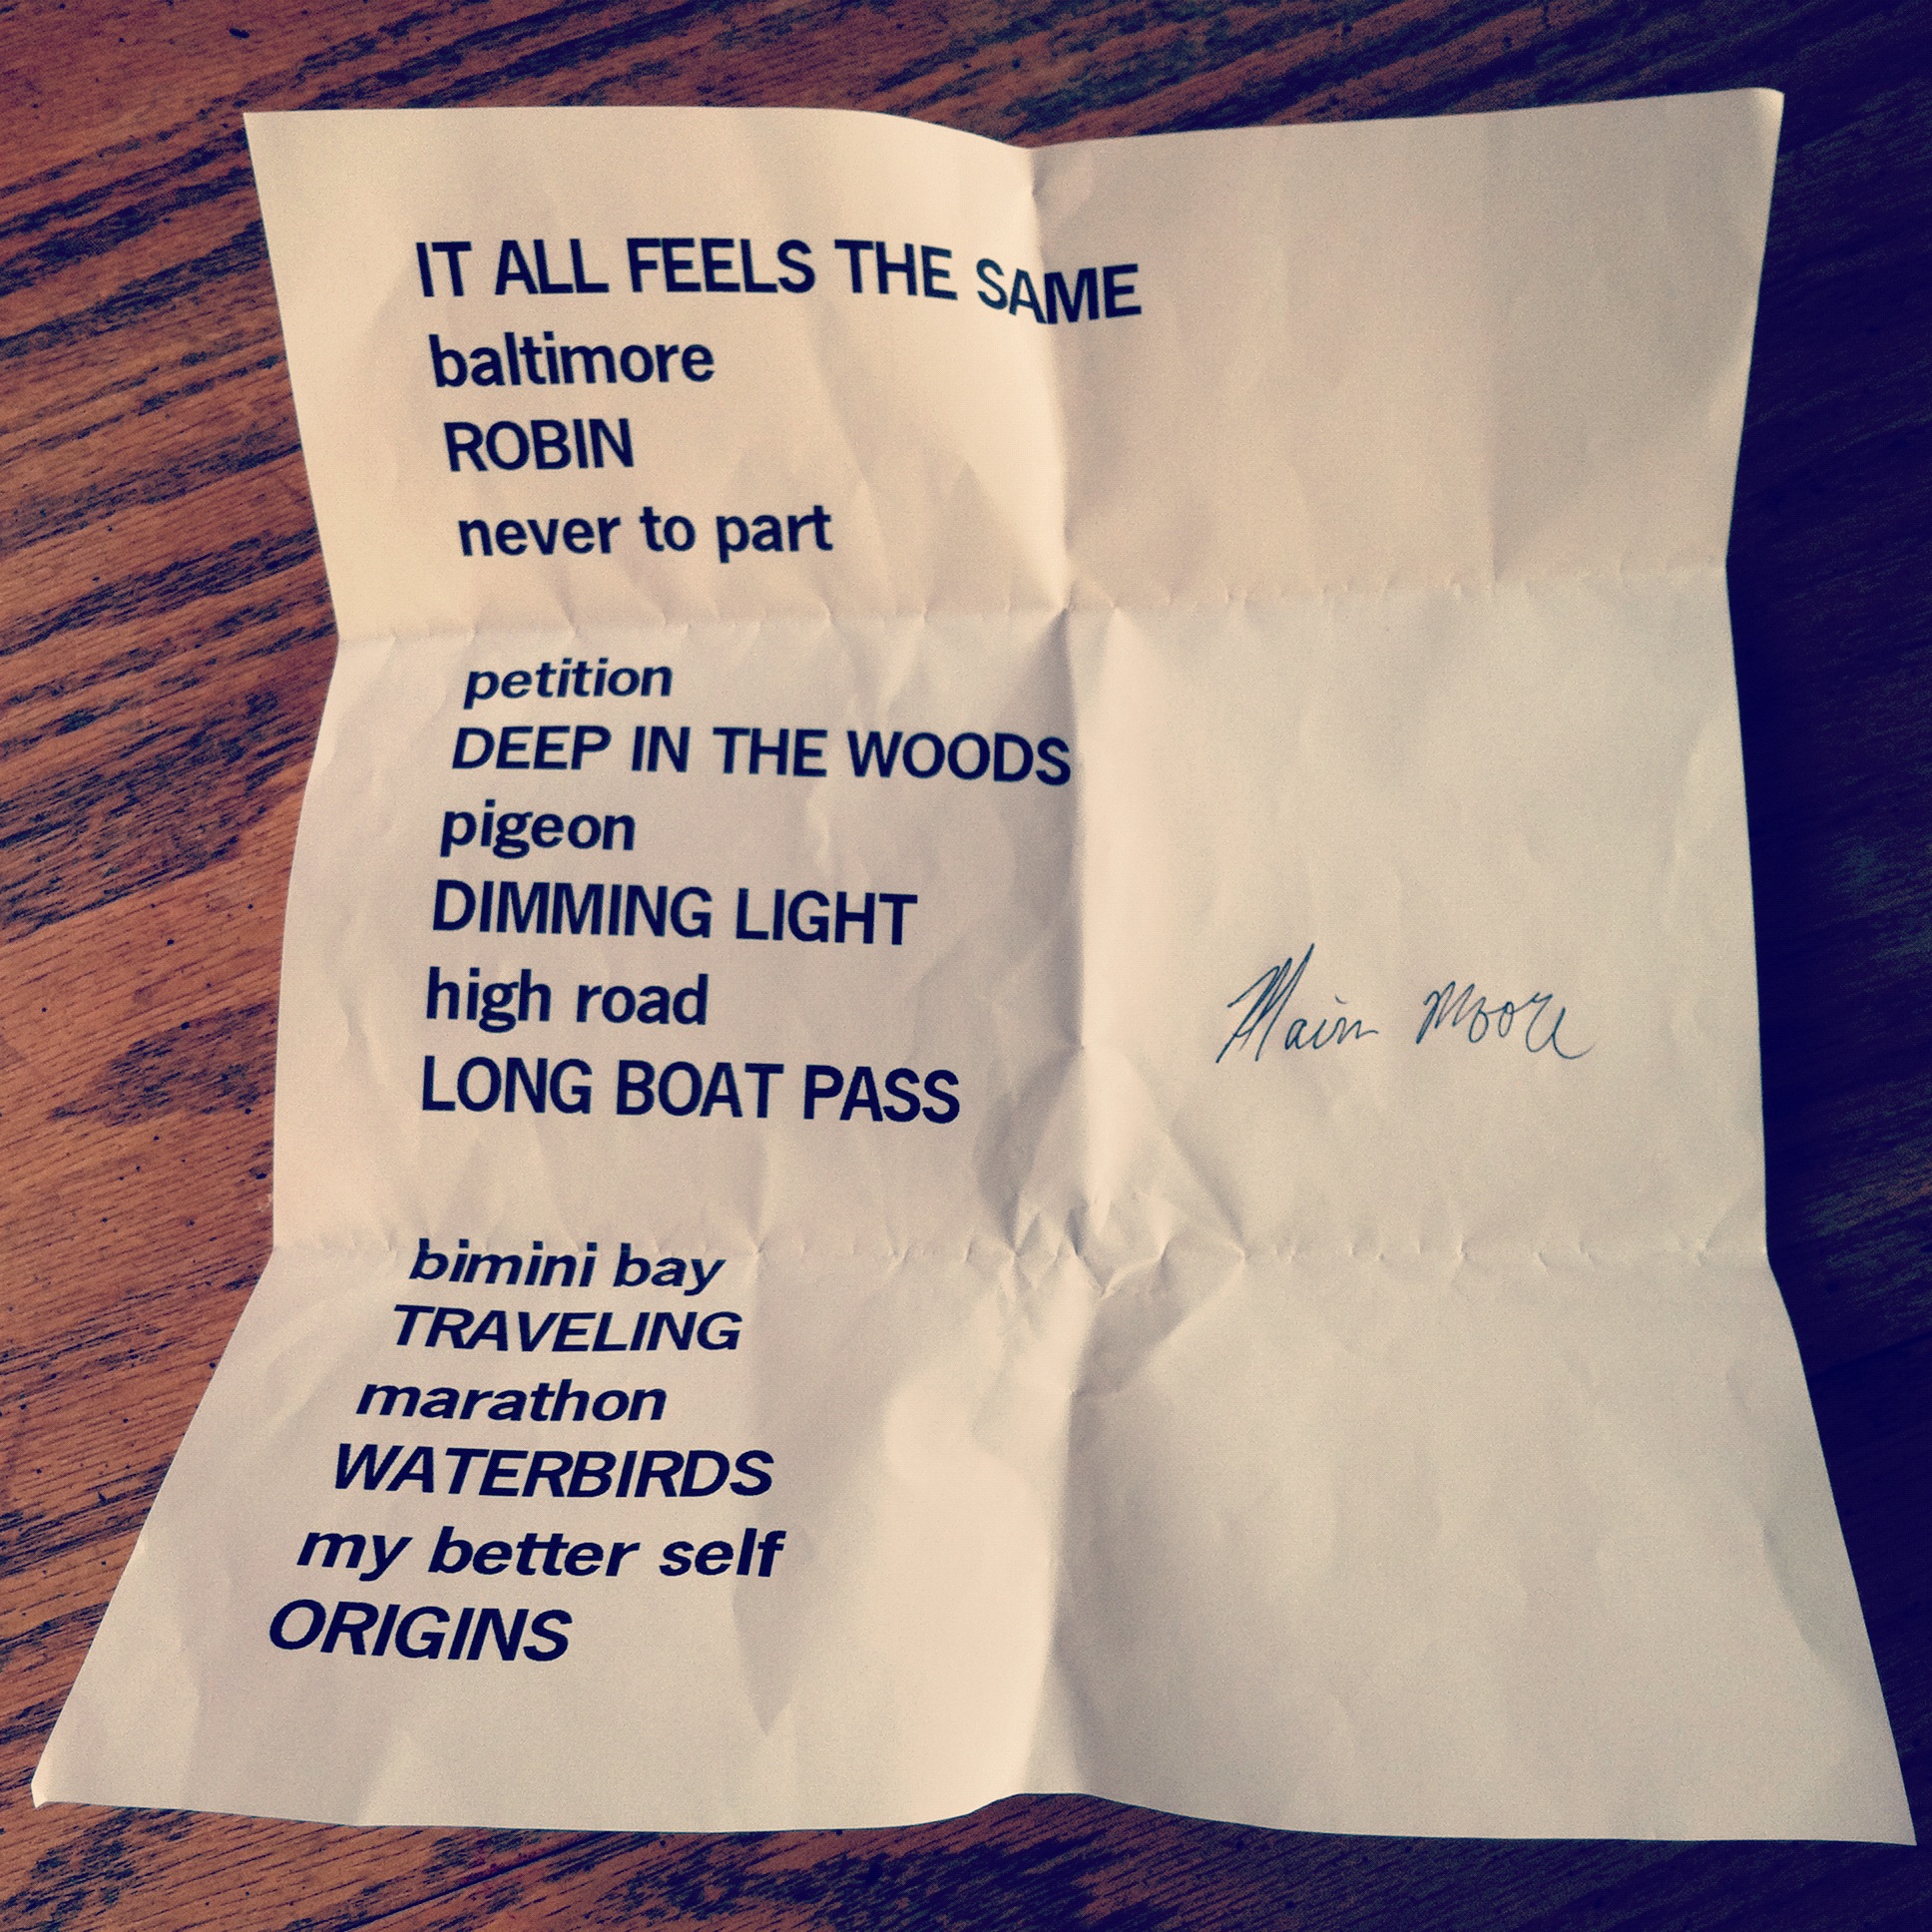 IT ALL FEELS THE SAME
baltimore
ROBIN
never to part
petition
DEEP IN THE WOODS
pigeon
DIMMING LIGHT
high road
LONG BOAT PASS
bimini bay
TRAVELING
marathon
WATERBIRDS
my better self
ORIGINS
Moore